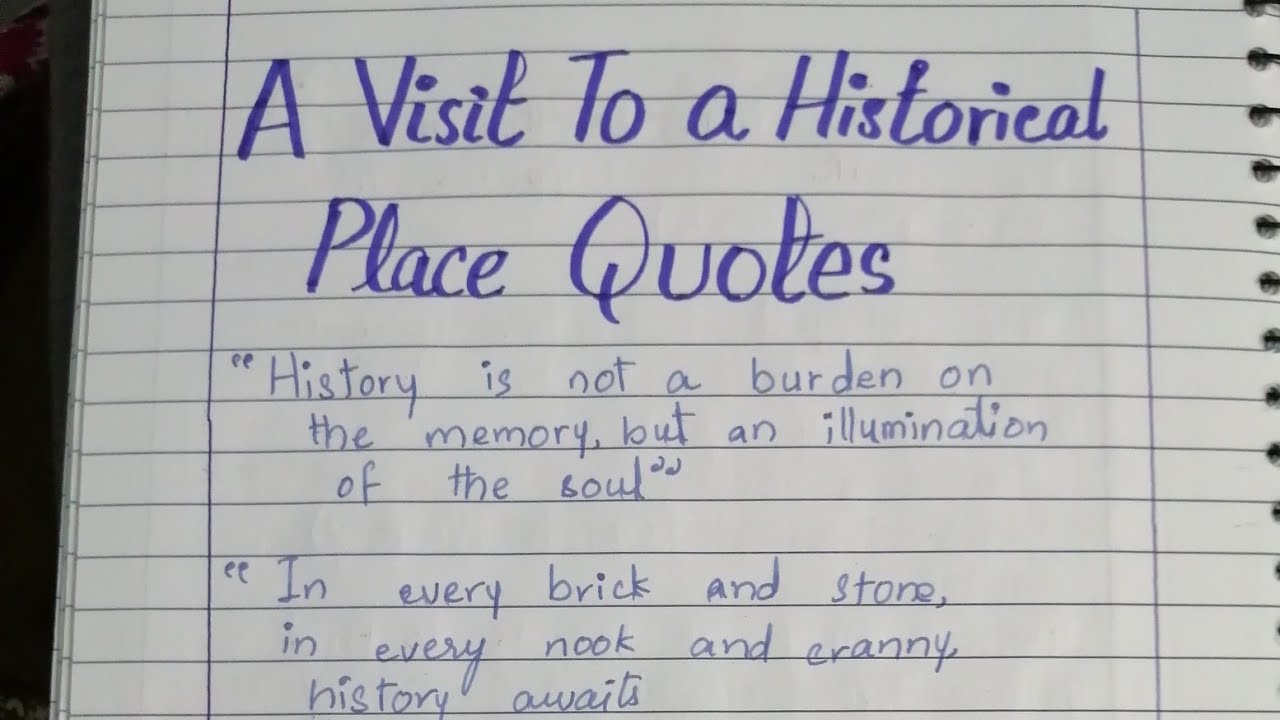 A Visit To a Historical
Place Quotes
“History is not a burden on
the memory, but an illumination
of the soul”
“In every brick and stone,
in every nook and cranny,
history awaits